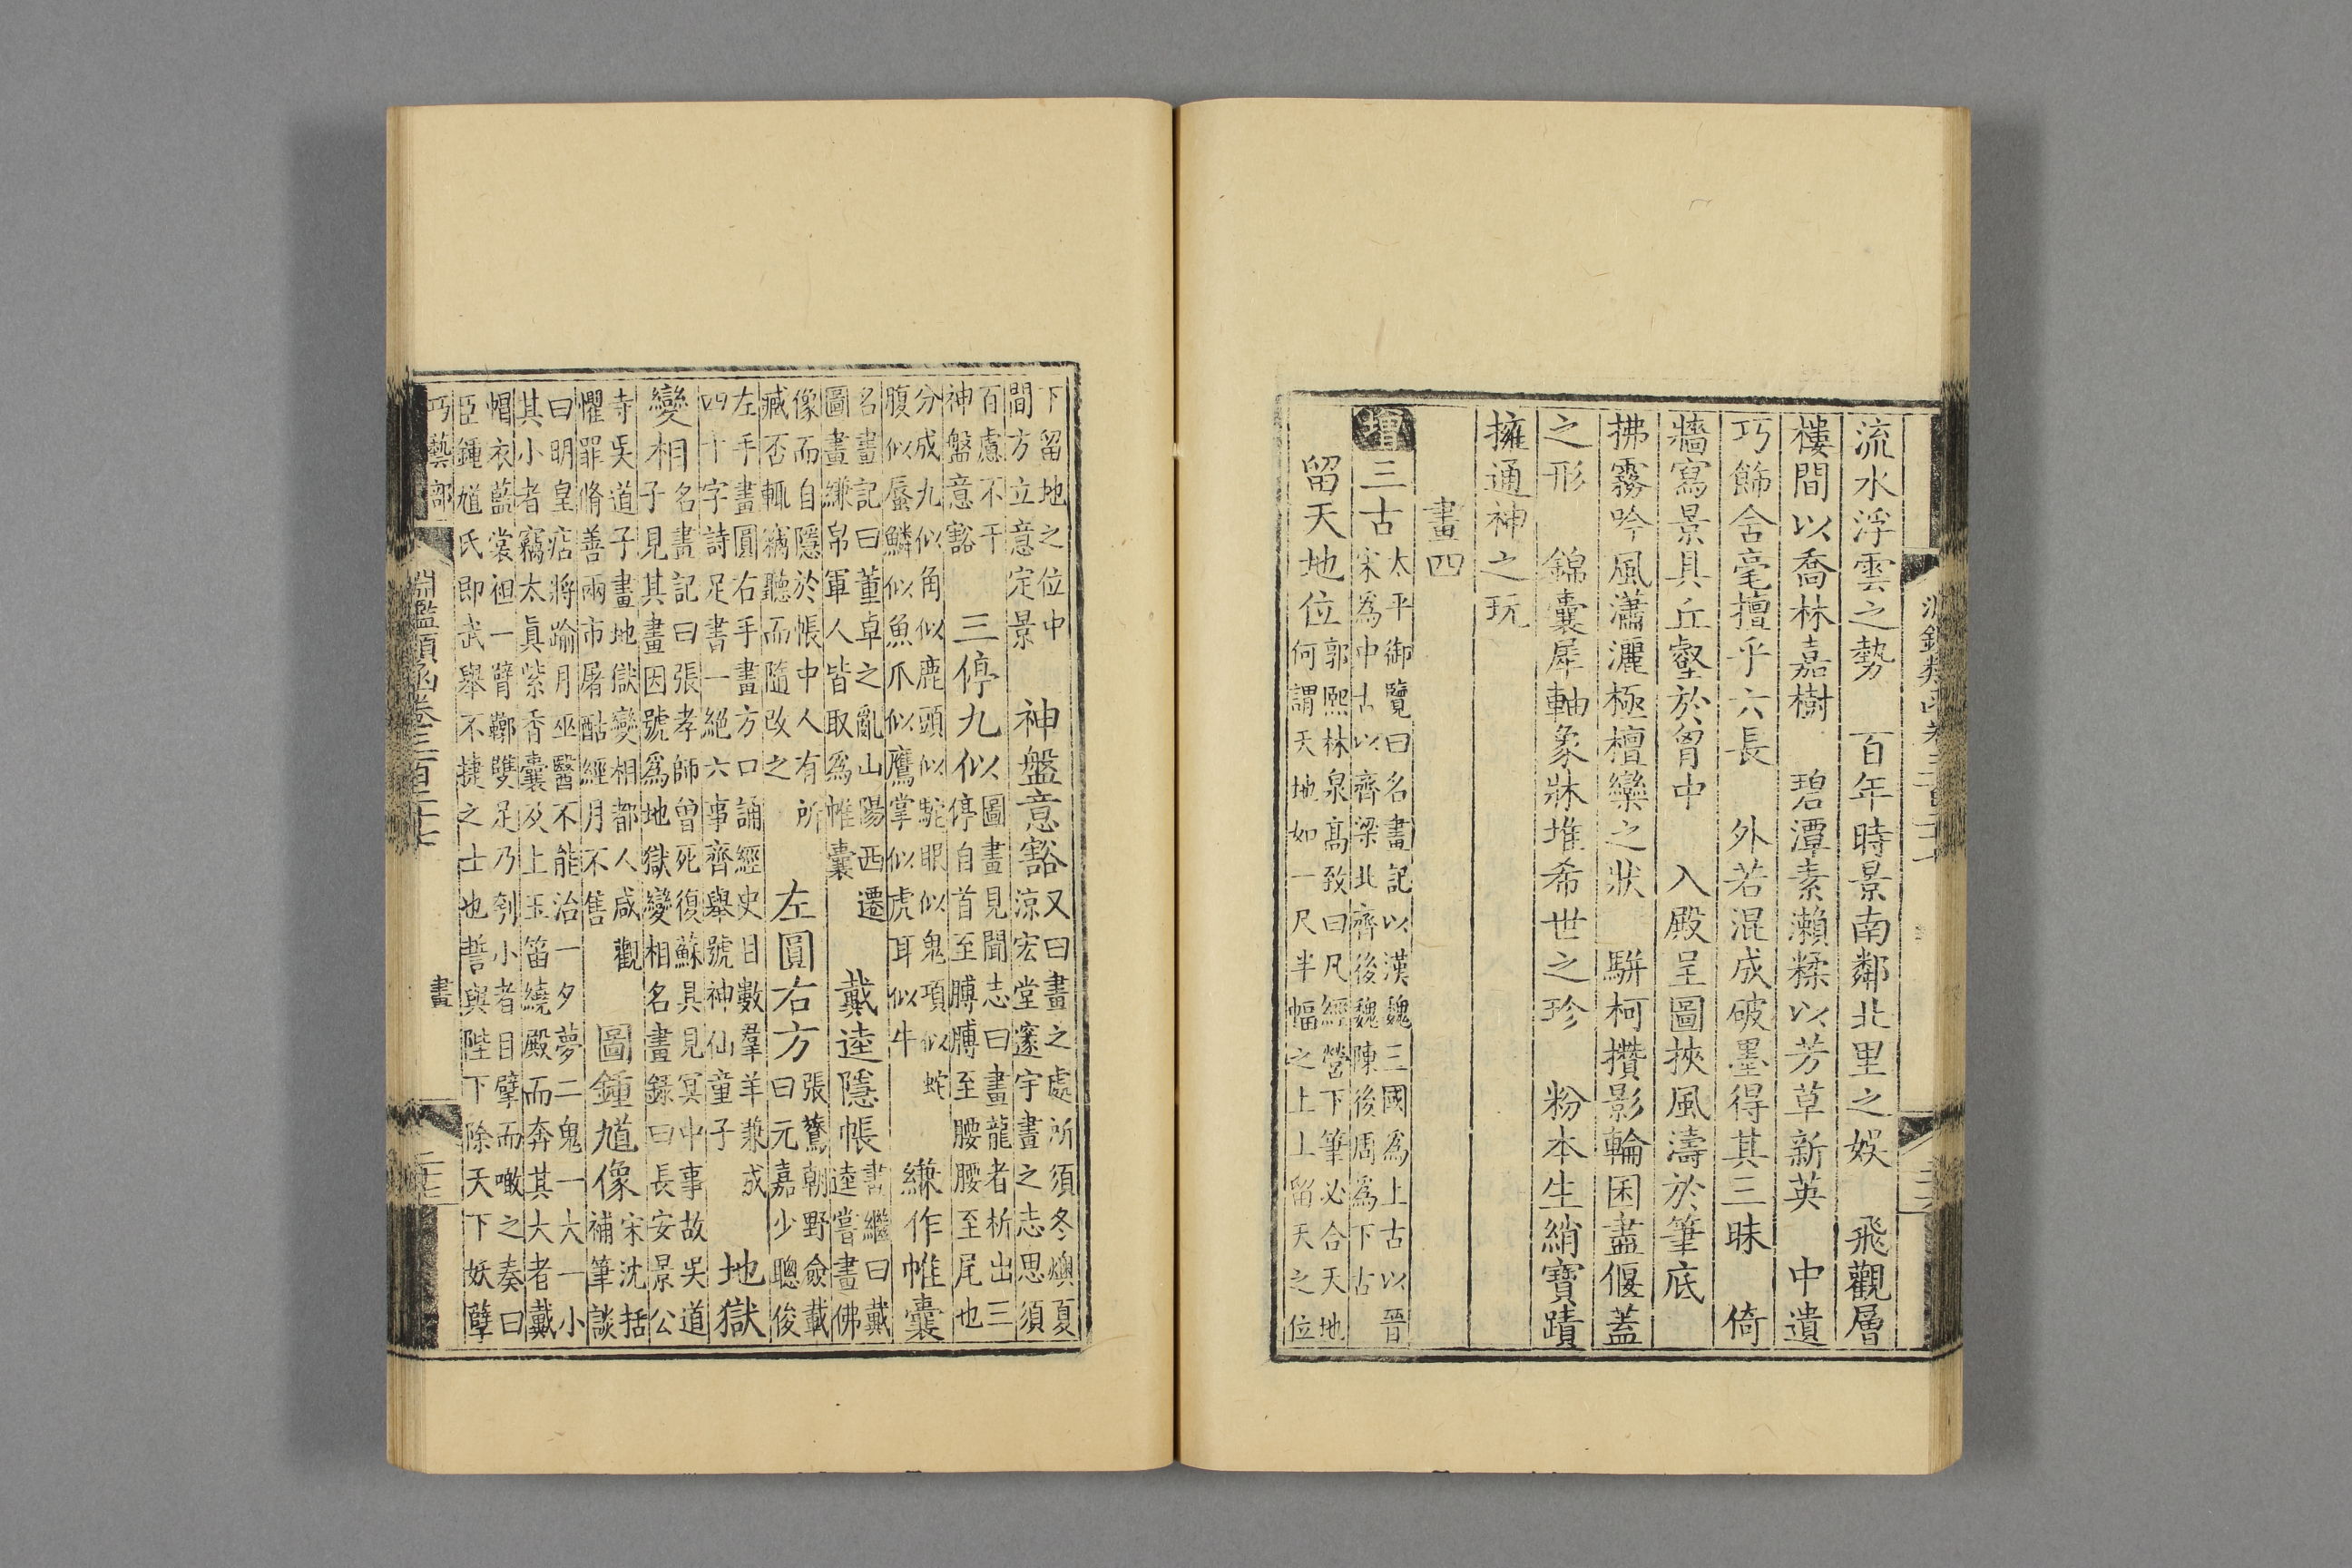 流水浮雲之勢　百年時景南鄰北里之娛　飛觀層
樓間以喬林嘉樹　碧潭素瀨糅以芳草新英　中遺
巧飾舍毫擅乎六長　外若混成破墨得其三昧　倚
牆寫景具丘壑於胷中　入殿呈圖挾風濤於筆底
拂霧吟風瀟灑極檀欒之狀　騈柯攢影輪囷盡偃蓋
之形　錦囊犀軸象牀堆希世之珍　粉本生綃寶蹟
擁通神之玩
畫四
增三古
太平御覽曰名畫記以漢魏三國爲上古以晉
宋爲中古以齊梁北齊後魏陳後周爲下古
留天地位
郭熙林泉高致曰凡經營下筆必合天地
何謂天地如一尺半幅之上上留天之位
下留地之位中
間方立意定景
神盤意豁
又曰畫之處所須冬燠夏
涼宏堂邃宇畫之志思須
百慮不干
神盤意豁
三停九似
圖畫見聞志曰畫龍者析出三
停自首至膊膊至腰腰至尾也
分成九似角似鹿頭似駝眼似鬼項似蛇
腹似蜃鱗似魚爪似鷹掌似虎耳似牛
縑作帷囊
名畫記曰董卓之亂山陽西遷
圖畫縑帛軍人皆取爲帷囊
戴逵隱帳
畫繼曰戴
逵嘗畫佛
像而自隱於帳中人有所
臧否輒竊聽而隨改之
左圓右方
張鷟朝野僉載
曰元嘉少聰俊
左手畫圓右手畫方口誦經史目數羣羊兼成
四十字詩足書一絕六事齊舉號神仙童子
地獄
變相
名畫記曰張孝師曾死復蘇具見冥中事故吳道
子見其畫因號爲地獄變相　名畫錄曰長安景公
寺吳道子畫地獄變相都人咸觀
懼罪脩善兩市屠酤經月不售
圖鍾馗像
宋沈括
補筆談
曰明皇痁將踰月巫醫不能治一夕夢二鬼一大一小
其小者竊太眞紫香囊及上玉笛繞殿而奔其大者戴
帽衣藍裳袒一臂鞹雙足乃刳小者目擘而噉之奏曰
臣鍾馗氏即武舉不捷之士也誓與陛下除天下妖孽
巧藝部
淵鑑類函卷三百二十七
畫